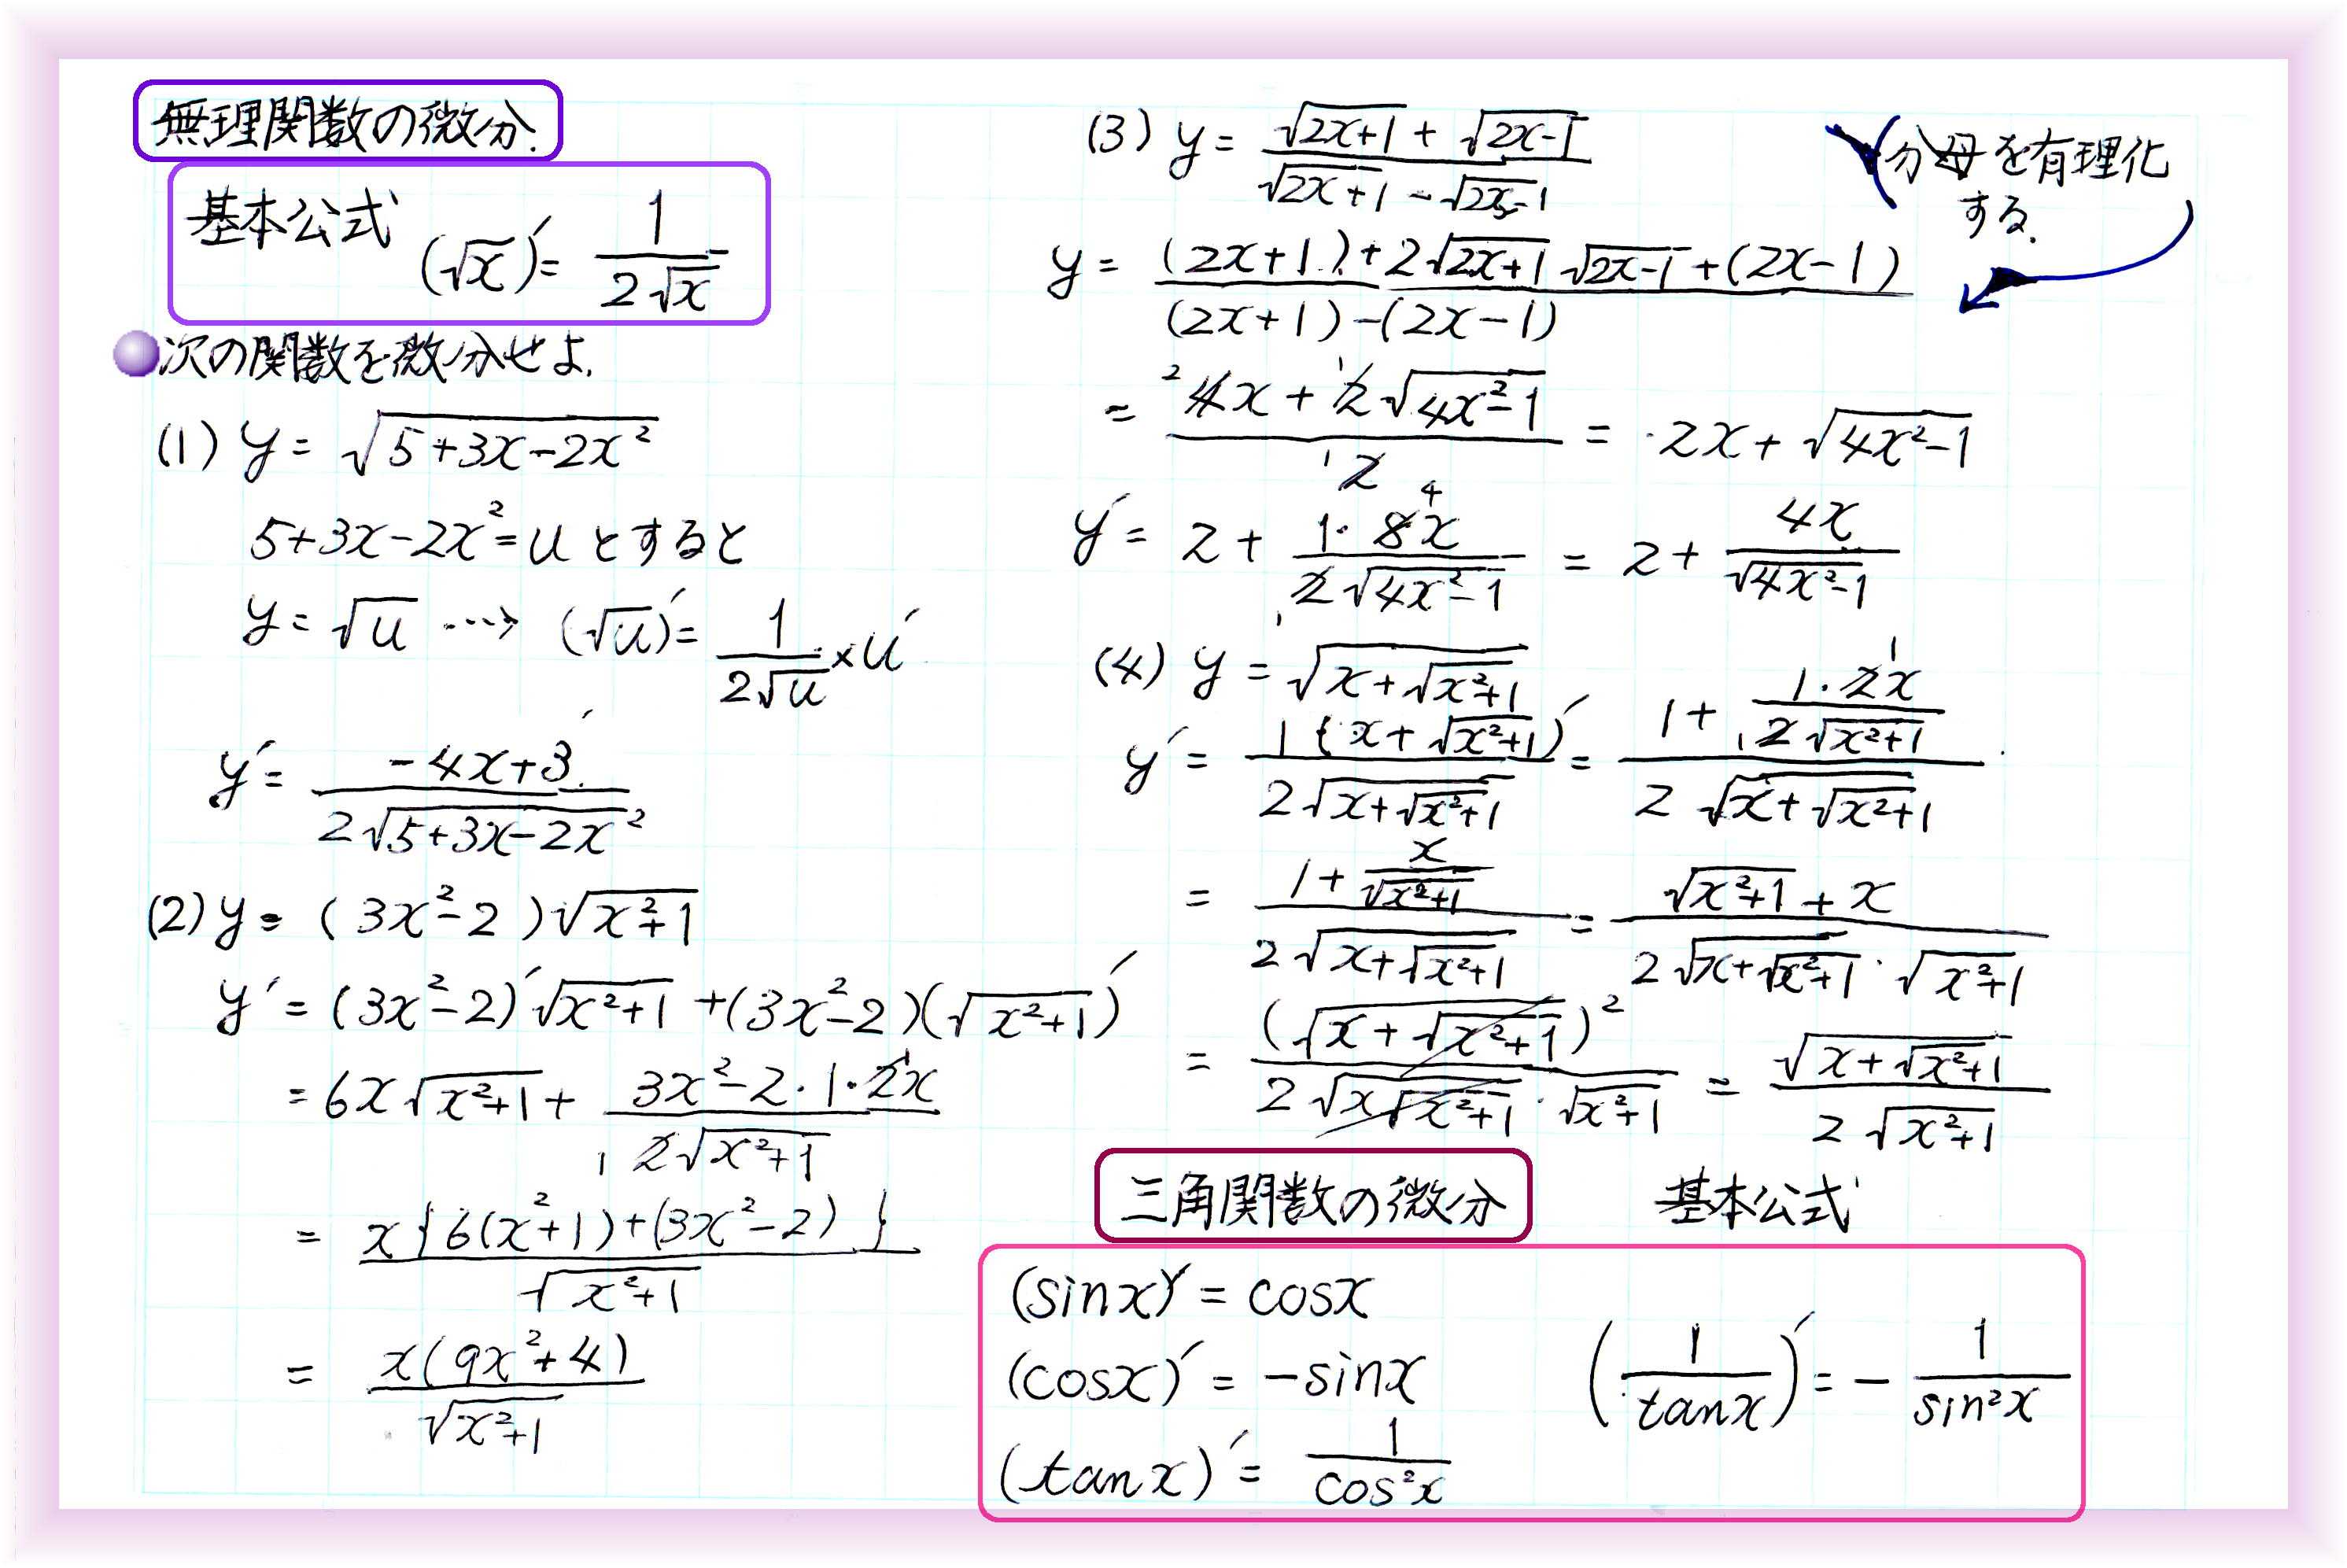 無理関数の微分.
基本公式 (√x)′= 1/(2√x)
次の関数を微分せよ.
(1) y = √(5+3x-2x²)
5+3x-2x²=u とすると
y = √u …→ (√u)′= 1/(2√u) ×u′
y′= (-4x+3)/(2√(5+3x-2x²))
(2) y = (3x²-2)√(x²+1)
y′ = (3x²-2)′√(x²+1) +(3x²-2)(√(x²+1))′
= 6x√(x²+1) + (3x²-2・1・2x)/(2√(x²+1))
= x{6(x²+1)+(3x²-2)}/√(x²+1)
= x(9x²+4)/√(x²+1)
(3) y = (√(2x+1) + √(2x-1))/(√(2x+1) - √(2x-1))
分母を有理化
する.
y = ((2x+1)+2√(2x+1)√(2x-1)+(2x-1))/((2x+1)-(2x-1))
= (4x + 2√(4x²-1))/2 = 2x + √(4x²-1)
y′= 2 + (1・8x)/(2√(4x²-1)) = 2 + 4x/√(4x²-1)
(4) y = √(x+√(x²+1))
y′ = 1(x+√(x²+1))′/(2√(x+√(x²+1))) = (1 + (1・2x)/(2√(x²+1)))/(2√(x+√(x²+1)))
= (1 + x/√(x²+1))/(2√(x+√(x²+1))) = (√(x²+1) + x)/(2√(x+√(x²+1))・√(x²+1))
= (√(x+√(x²+1)))²/(2√(x√(x²+1))・√(x²+1)) = √(x+√(x²+1))/(2√(x²+1))
三角関数の微分 基本公式
(sinx)′ = cosx
(cosx)′ = -sinx
(tanx)′ = 1/cos²x
(1/tanx)′ = - 1/sin²x